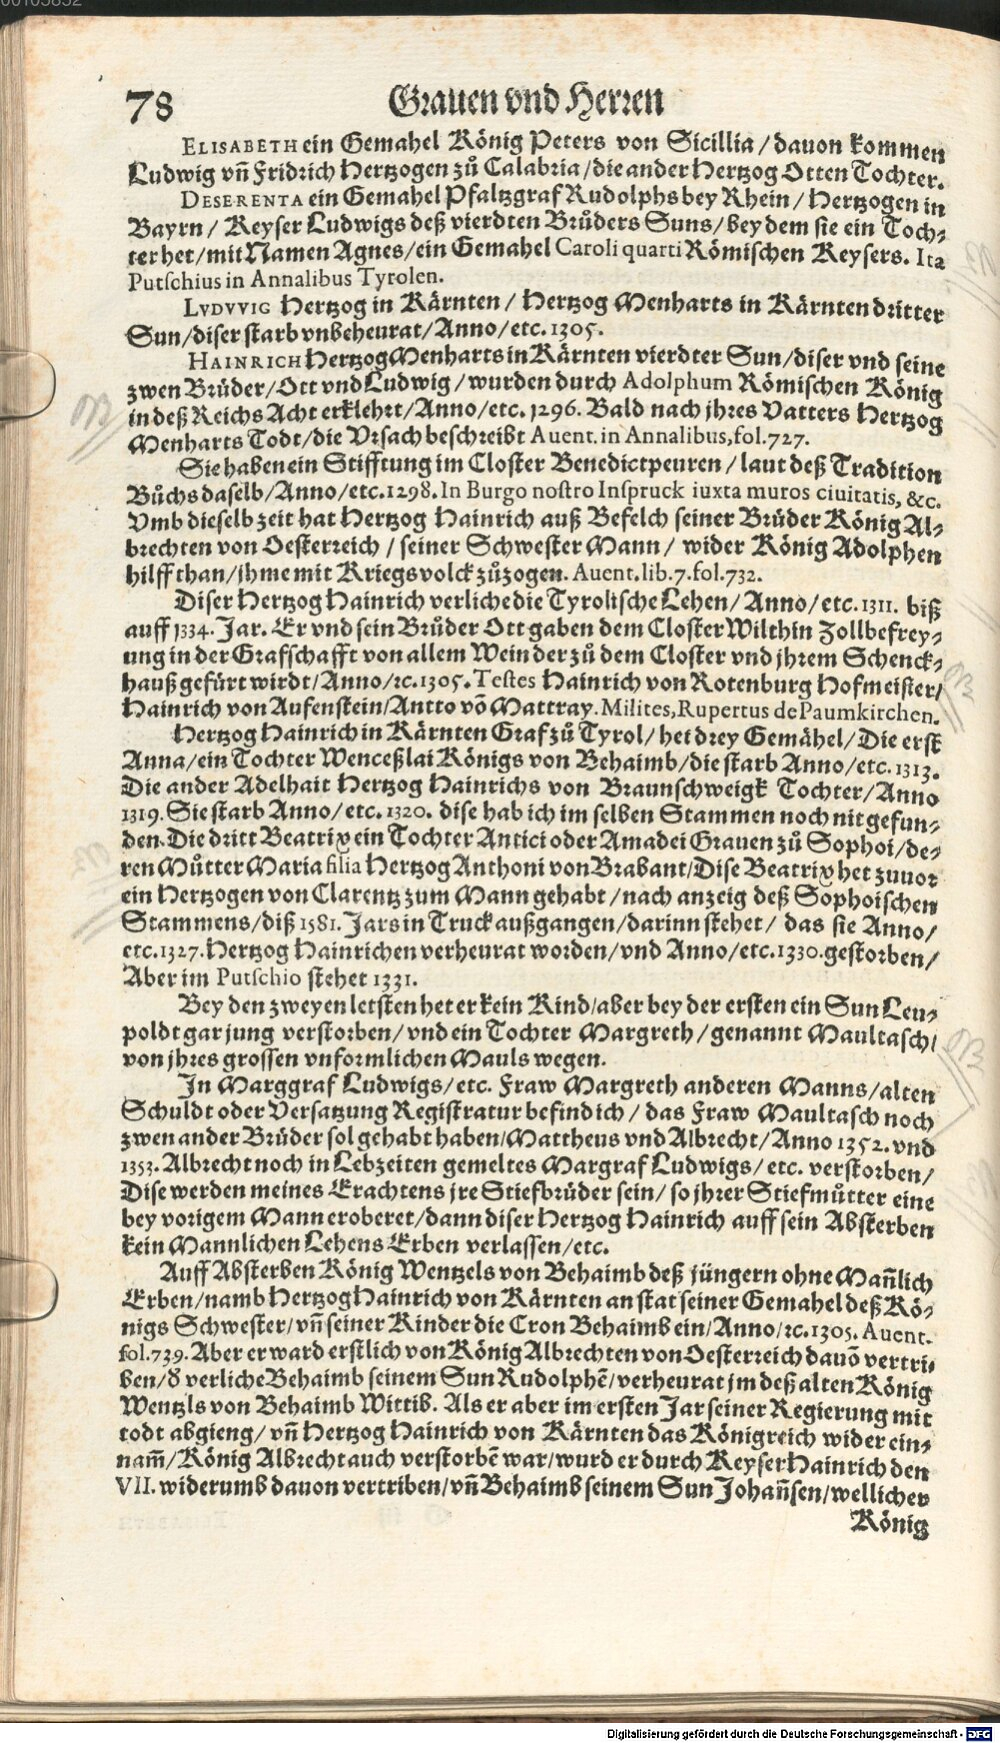 00105852
78
Grauen vnd Herren
ELISABETH ein Gemahel König Peters von Sicillia / dauon kommen
Ludwig vñ Fridrich Hertzogen zů Calabria / die ander Hertzog Otten Tochter.
DESERENTA ein Gemahel Pfaltzgraf Rudolphs bey Rhein / Hertzogen in
Bayrn / Keyser Ludwigs deß vierdten Brůders Suns / bey dem sie ein Toch-
ter het / mit Namen Agnes / ein Gemahel Caroli quarti Römischen Keysers. Ita
Putschius in Annalibus Tyrolen.
LVDVVIG Hertzog in Kärnten / Hertzog Menharts in Kärnten dritter
Sun / diser starb vnbeheurat / Anno / etc. 1305.
HAINRICH Hertzog Menharts in Kärnten vierdter Sun / diser vnd seine
zwen Brüder / Ott vnd Ludwig / wurden durch Adolphum Römischen König
in deß Reichs Acht erklehrt / Anno / etc. 1296. Bald nach jhres Vatters Hertzog
Menharts Todt / die Vrsach beschreibt Auent. in Annalibus, fol. 727.
Sie haben ein Stifftung im Closter Benedictpeuren / laut deß Tradition
Bůchs daselb / Anno / etc. 1298. In Burgo nostro Inspruck iuxta muros ciuitatis, &c.
Vmb dieselb zeit hat Hertzog Hainrich auß Befelch seiner Brüder König Al-
brechten von Oesterreich / seiner Schwester Mann / wider König Adolphen
hilff than / jhme mit Kriegsvolck zůzogen. Auent. lib. 7. fol. 732.
Diser Hertzog Hainrich verliche die Tyrolische Lehen / Anno / etc. 1311. biß
auff 1334. Jar. Er vnd sein Brůder Ott gaben dem Closter Wilthin Zollbefrey-
ung in der Grafschafft von allem Wein der zů dem Closter vnd jhrem Schenck-
hauß gefürt wirdt / Anno / ꝛc. 1305. Testes Hainrich von Rotenburg Hofmeister /
Hainrich von Aufenstein / Antto võ Mattray. Milites, Rupertus de Paumkirchen.
Hertzog Hainrich in Kärnten Graf zů Tyrol / het drey Gemähel / Die erst
Anna / ein Tochter Wenceßlai Königs von Behaimb / die starb Anno / etc. 1313.
Die ander Adelhait Hertzog Hainrichs von Braunschweigk Tochter / Anno
1319. Sie starb Anno / etc. 1320. dise hab ich im selben Stammen noch nit gefun-
den. Die dritt Beatrix ein Tochter Antici oder Amadei Grauen zů Sophoi / de-
ren Můtter Maria filia Hertzog Anthoni von Brabant / Dise Beatrix het zuuor
ein Hertzogen von Clarentz zum Mann gehabt / nach anzeig deß Sophoischen
Stammens / diß 1581. Jars in Truck außgangen / darinn stehet / das sie Anno /
etc. 1327. Hertzog Hainrichen verheurat worden / vnd Anno / etc. 1330. gestorben /
Aber im Putschio stehet 1331.
Bey den zweyen letsten het er kein Kind / aber bey der ersten ein Sun Leu-
poldt gar jung verstorben / vnd ein Tochter Margreth / genannt Maultasch /
von jhres grossen vnformlichen Mauls wegen.
In Marggraf Ludwigs / etc. Fraw Margreth anderen Manns / alten
Schuldt oder Versatzung Registratur befind ich / das Fraw Maultasch noch
zwen ander Brüder sol gehabt haben / Mattheus vnd Albrecht / Anno 1352. vnd
1353. Albrecht noch in Lebzeiten gemeltes Margraf Ludwigs / etc. verstorben /
Dise werden meines Erachtens jre Stiefbrüder sein / so jhrer Stiefmůtter eine
bey vorigem Mann eroberet / dann diser Hertzog Hainrich auff sein Absterben
kein Mannlichen Lehens Erben verlassen / etc.
Auff Absterben König Wentzels von Behaimb deß jüngern ohne Mañlich
Erben / namb Hertzog Hainrich von Kärnten an stat seiner Gemahel deß Kö-
nigs Schwester / vñ seiner Kinder die Cron Behaimb ein / Anno / ꝛc. 1305. Auent.
fol. 739. Aber er ward erstlich von König Albrechten von Oesterreich dauõ vertri-
ben / d̕ verliche Behaimb seinem Sun Rudolphẽ / verheurat jm deß alten König
Wentzls von Behaimb Wittib. Als er aber im ersten Jar seiner Regierung mit
todt abgieng / vñ Hertzog Hainrich von Kärnten das Königreich wider ein-
nam̃ / König Albrecht auch verstorbẽ war / wurd er durch Keyser Hainrich den
VII. widerumb dauon vertriben / vñ Behaimb seinem Sun Johañsen / wellicher
König
Digitalisierung gefördert durch die Deutsche Forschungsgemeinschaft - DFG